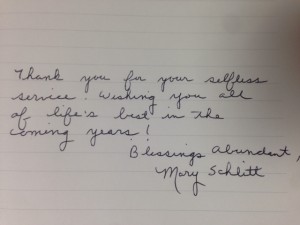 Thank you for your selfless
service. Wishing you all
of life's best in the
coming years!
Blessings abundant,
Mary Schlitt